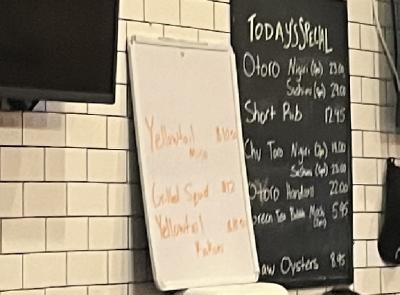 TODAY'S SPECIAL
Otoro Nigiri (2pc) 23.00
Sashimi (5pc) 29.00
Short Rib 12.95
Chu Toro Nigiri
Sashimi
Otoro Handroll 22.00
Green Tea Mochi 5.95
Raw Oysters 8.95
Yellowtail
Miso
Grilled Squid $12
Yellowtail